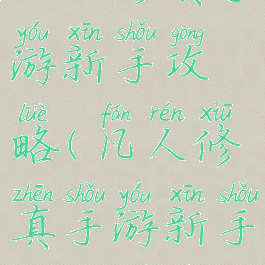 yóu xīn shǒu gōng
游新手攻
lüè fán rén xiū
略(凡人修
zhēn shǒu yóu xīn shǒu
真手游新手